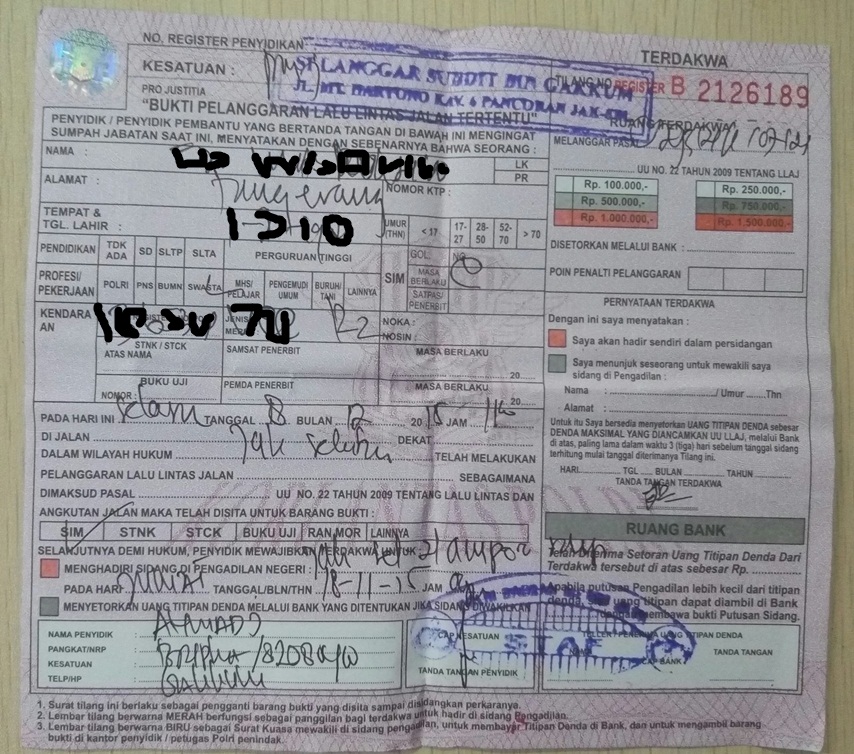 NO. REGISTER PENYIDIKAN
TERDAKWA
KESATUAN :
LANGGAR SUBDIT BIN GAKKUM
TILANG NO REGISTER B 2126189
PRO JUSTITIA
JL. MT. HARYONO KAV. 6 PANCORAN JAK-SEL
"BUKTI PELANGGARAN LALU LINTAS JALAN TERTENTU"
RUANG TERDAKWA
PENYIDIK / PENYIDIK PEMBANTU YANG BERTANDA TANGAN DI BAWAH INI MENGINGAT
SUMPAH JABATAN SAAT INI, MENYATAKAN DENGAN SEBENARNYA BAHWA SEORANG :
MELANGGAR PASAL
NAMA :
LK
PR
UU NO. 22 TAHUN 2009 TENTANG LLAJ
ALAMAT :
Tangerang
NOMOR KTP :
Rp. 100.000,-
Rp. 250.000,-
Rp. 500.000,-
Rp. 750.000,-
Rp. 1.000.000,-
Rp. 1.500.000,-
TEMPAT &
TGL. LAHIR :
UMUR (THN)
< 17
17-27
28-50
52-70
> 70
DISETORKAN MELALUI BANK :
PENDIDIKAN
TDK ADA
SD
SLTP
SLTA
PERGURUAN TINGGI
SIM
GOL:
MASA BERLAKU
SATPAS PENERBIT
POIN PENALTI PELANGGARAN
PROFESI/
PEKERJAAN
POLRI
PNS
BUMN
SWASTA
MHS/ PELAJAR
PENGEMUDI UMUM
BURUH/ TANI
LAINNYA
PERNYATAAN TERDAKWA
KENDARA
AN
R2
NOKA :
NOSIN :
Dengan ini saya menyatakan :
Saya akan hadir sendiri dalam persidangan
STNK / STCK
ATAS NAMA
SAMSAT PENERBIT
MASA BERLAKU
20
Saya menunjuk seseorang untuk mewakili saya
sidang di Pengadilan :
BUKU UJI
NOMOR:
PEMDA PENERBIT
MASA BERLAKU
20
Nama : / Umur Thn
Alamat :
PADA HARI INI Selasa TANGGAL 8 BULAN 12 20 15 JAM
Untuk itu Saya bersedia menyetorkan UANG TITIPAN DENDA sebesar
DENDA MAKSIMAL YANG DIANCAMKAN UU LLAJ, melalui Bank
di atas, paling lama dalam waktu 3 (tiga) hari sebelum tanggal sidang
terhitung mulai tanggal diterimanya Tilang ini.
DI JALAN Jak Selatan DEKAT
DALAM WILAYAH HUKUM TELAH MELAKUKAN
HARI TGL BULAN TAHUN
TANDA TANGAN TERDAKWA
PELANGGARAN LALU LINTAS JALAN SEBAGAIMANA
DIMAKSUD PASAL UU NO. 22 TAHUN 2009 TENTANG LALU LINTAS DAN
ANGKUTAN JALAN MAKA TELAH DISITA UNTUK BARANG BUKTI :
SIM
STNK
STCK
BUKU UJI
RAN MOR
LAINNYA
RUANG BANK
SELANJUTNYA DEMI HUKUM, PENYIDIK MEWAJIBKAN TERDAKWA UNTUK
MENGHADIRI SIDANG DI PENGADILAN NEGERI :
Telah Diterima Setoran Uang Titipan Denda Dari
Terdakwa tersebut di atas sebesar Rp.
PADA HARI TANGGAL/BLN/THN JAM
MENYETORKAN UANG TITIPAN DENDA MELALUI BANK YANG DITENTUKAN JIKA SIDANG DIWAKILKAN
Apabila putusan Pengadilan lebih kecil dari titipan
denda, sisa uang titipan dapat diambil di Bank
dengan membawa bukti Putusan Sidang.
NAMA PENYIDIK :
PANGKAT/NRP :
KESATUAN :
TELP/HP :
CAP KESATUAN
TANDA TANGAN PENYIDIK
TELLER PENERIMA UANG TITIPAN DENDA
CAP BANK
TANDA TANGAN
1. Surat tilang ini berlaku sebagai pengganti barang bukti yang disita sampai disidangkan perkaranya.
2. Lembar tilang berwarna MERAH berfungsi sebagai panggilan bagi terdakwa untuk hadir di sidang Pengadilan.
3. Lembar tilang berwarna BIRU sebagai Surat Kuasa mewakili di sidang pengadilan, untuk membayar Titipan Denda di Bank, dan untuk mengambil barang
bukti di kantor penyidik / petugas Polri penindak.